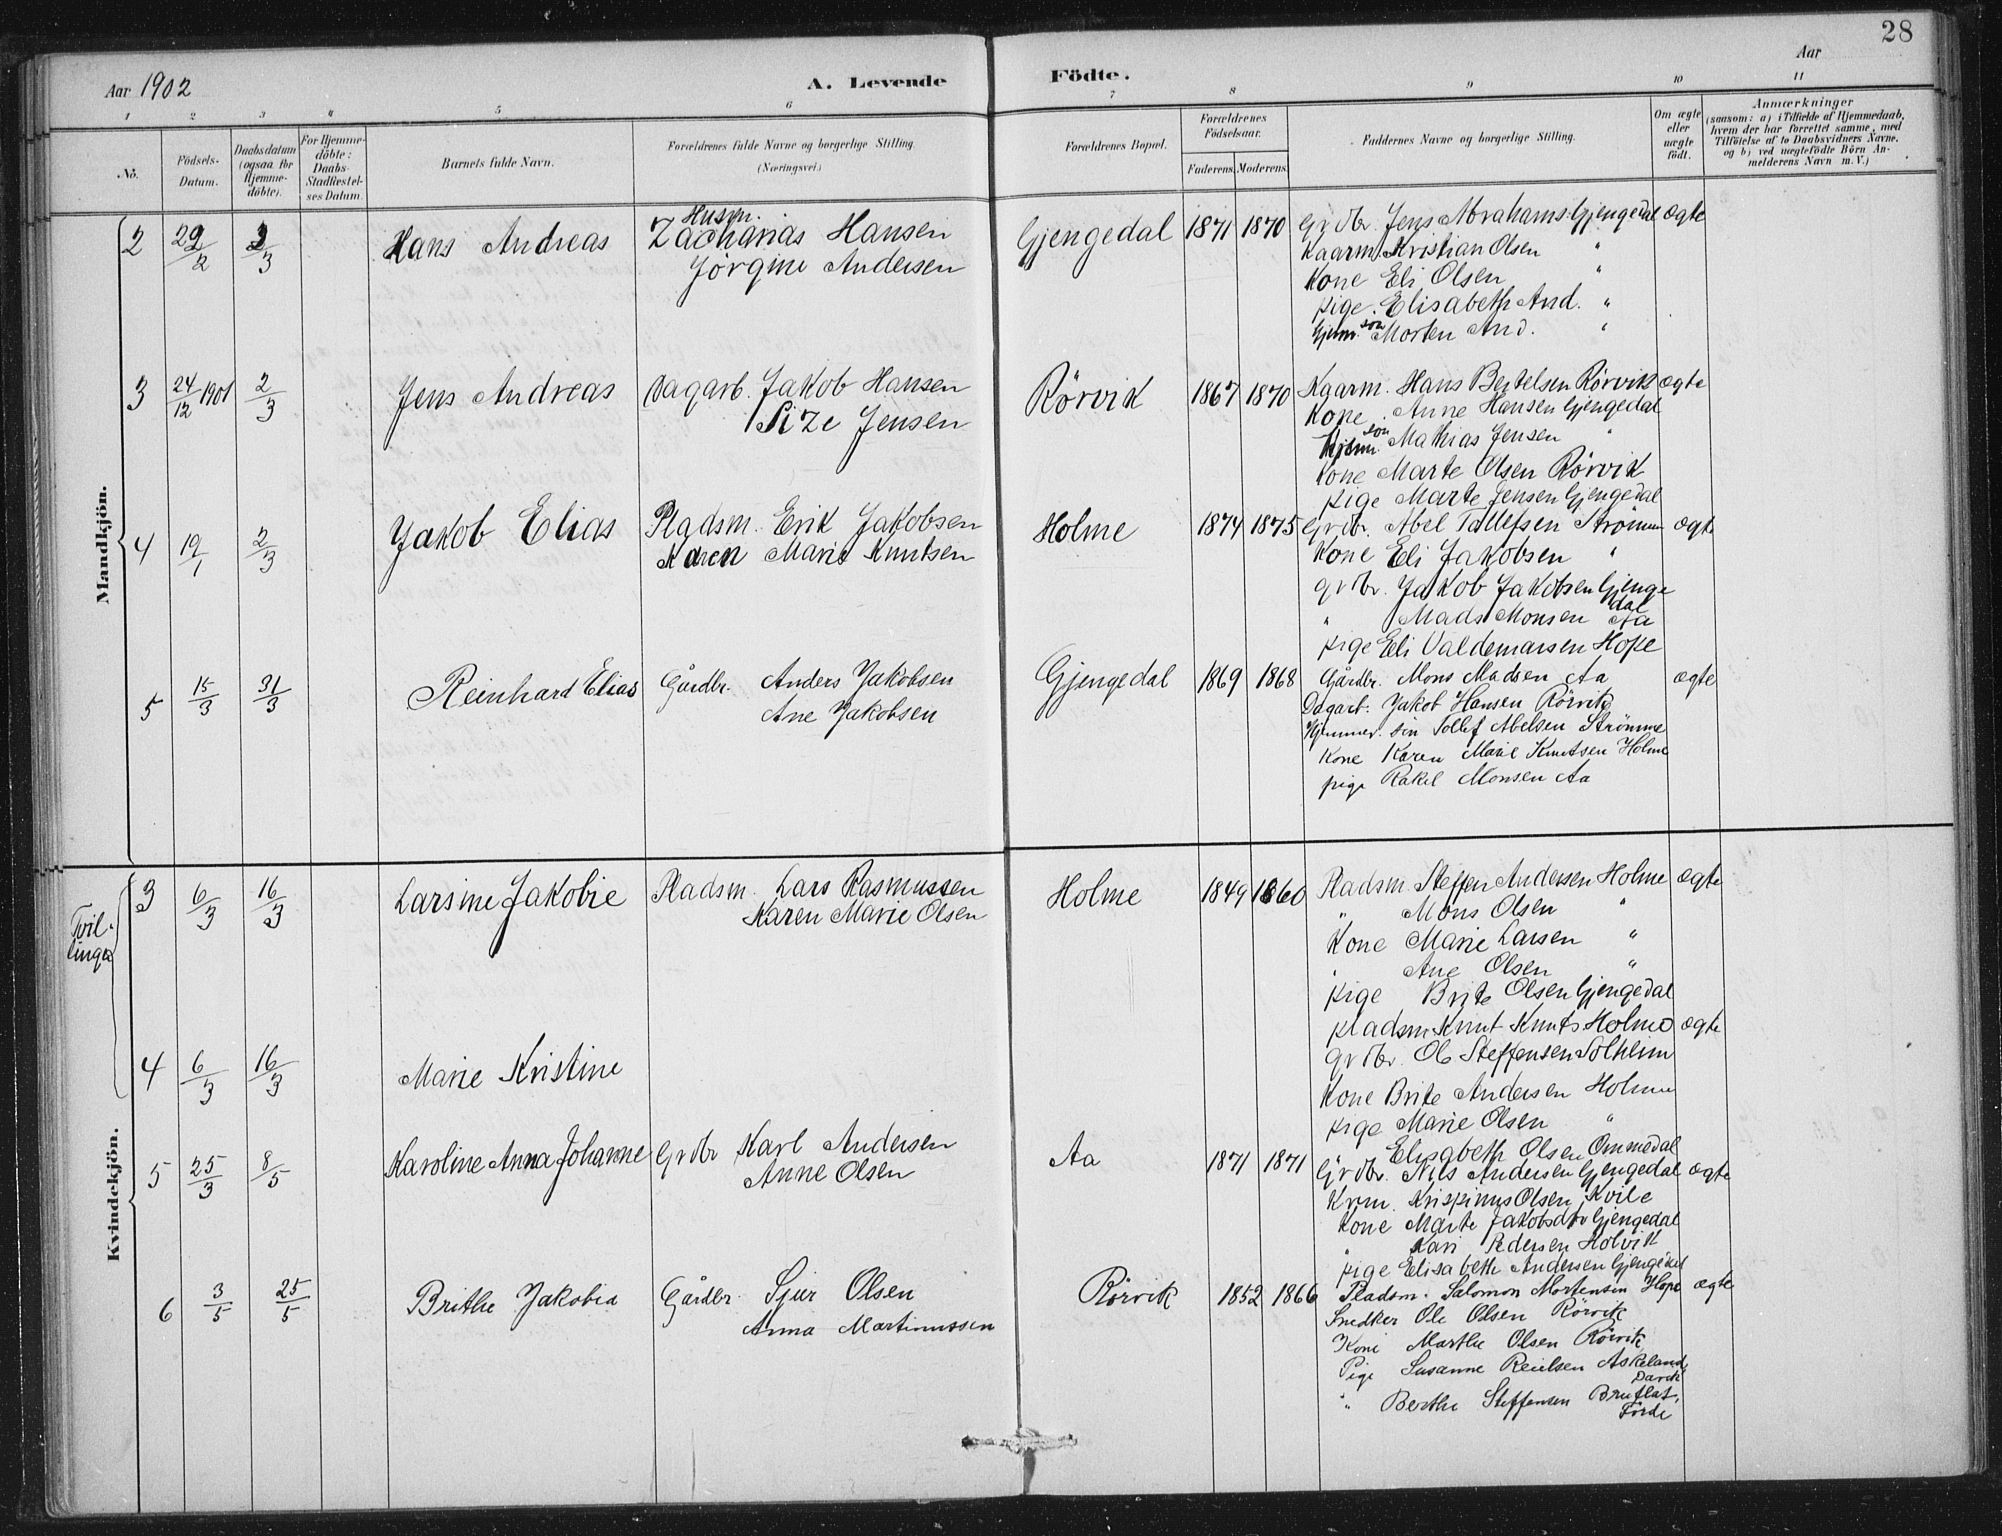 28
Aar 1902
A. Levende
Födte.
Aar
1 2 3 4 5 6 7 8 9 10 11
No.
Födsels-Datum.
Daabsdatum (ogsaa for Hjemme-döbte).
For Hjemme-döbte: Daabs-Stadfæstel-ses Datum.
Barnets fulde Navn.
Forældrenes fulde Navne og borgerlige Stilling. (Næringsvei.)
Forældrenes Bopæl.
Forældrenes Födselsaar.
Faderens. Moderens.
Faddernes Navne og borgerlige Stilling.
Om ægte eller uægte födt.
Anmærkninger
(saasom: a) i Tilfælde af Hjemmedaab, hvem der har forrettet samme, med Tilföielse af to Daabsvidners Navne, og b) ved uægtefödte Börn An-melderens Navn m. V.)
Mandkjön.
2 29/2 3/3 Hans Andreas
Husm.
Zacharias Hansen
Jörgine Andersen
Gjengedal 1871 1870
Grdbr. Jens Abrahams. Gjengedal ægte
Kaarm. Kristian Olsen "
Kone Eli Olsen "
pige. Elisabeth And. "
Hjem. søn Morten And. "
3 24/12 1901 2/3 Jens Andreas
Dagarb. Jakob Hansen
Size Jensen
Rörvik 1867 1870
Kaarm. Hans Bertelsen Rörvik ægte
Kone. Anne Hansen Gjengedal
Hjem. søn Mathias Jensen "
Kone Marte Olsen Rörvik
pige Marte Jensen Gjengedal
4 19/1 2/3 Jakob Elias
Pladsm. Erik Jakobsen
Karen Marie Knutsen
Holme 1874 1875
Grdbr. Abel Tollefsen Strömm ægte
Kone Eli Jakobsen "
grdbr. Jakob Jakobsen Gjenge
dal
" Mads Monsen Aa
pige Eli Valdemarsen Hope
5 15/3 31/3 Reinhard Elias
Gårdbr. Anders Jakobsen
Ane Jakobsen
Gjengedal 1869 1868
Gårdbr. Mons Madsen Aa ægte
Dagarb. Jakob Hansen Rörvik
Hjemmev. søn Tollef Abelsen Strömme
Kone Karen Marie Knutsen Holme
pige Rakel Monsen Aa
Kvindekjön.
Tvil-
linger
3 6/3 16/3 Larsine Jakobie
Pladsm. Lars Rasmussen
Karen Marie Olsen
Holme 1849 1860
Pladsm. Steffen Andersen Holme ægte
" Mons Olsen "
Kone Marie Larsen "
" Ane Olsen "
pige Brite Olsen Gjengedal
4 6/3 16/3 Marie Kristine
pladsm Knut Knuts. Holme ægte
grdbr. Ole Steffensen Solheim
Kone Brite Andersen Holme
pige Marie Olsen "
Elisabeth Olsen Ommedal
5 25/3 8/5 Karoline Anna Johanne
Grdbr Karl Andersen
Anne Olsen
Aa 1871 1871
Grdbr. Nils Andersen Gjengedal ægte
Krm. Krispinus Olsen, Kvile
Kone Marte Jakobsdtr Gjengedal
" Kari Pedersen Holvik
pige Elisabeth Andersen Gjengedal
6 3/5 25/5 Brithe Jakobia
Gårdbr. Sjur Olsen
Anna Martinussen
Rörvik 1852 1866
Pladsm. Salomon Mortensen Hope ægte
Snedker Ole Olsen Rörvik
Kone Marthe Olsen Rörvik
Pige Susanne Reielsen Askeland,
Davik
" Berthe Steffensen Bruflat,
Förde